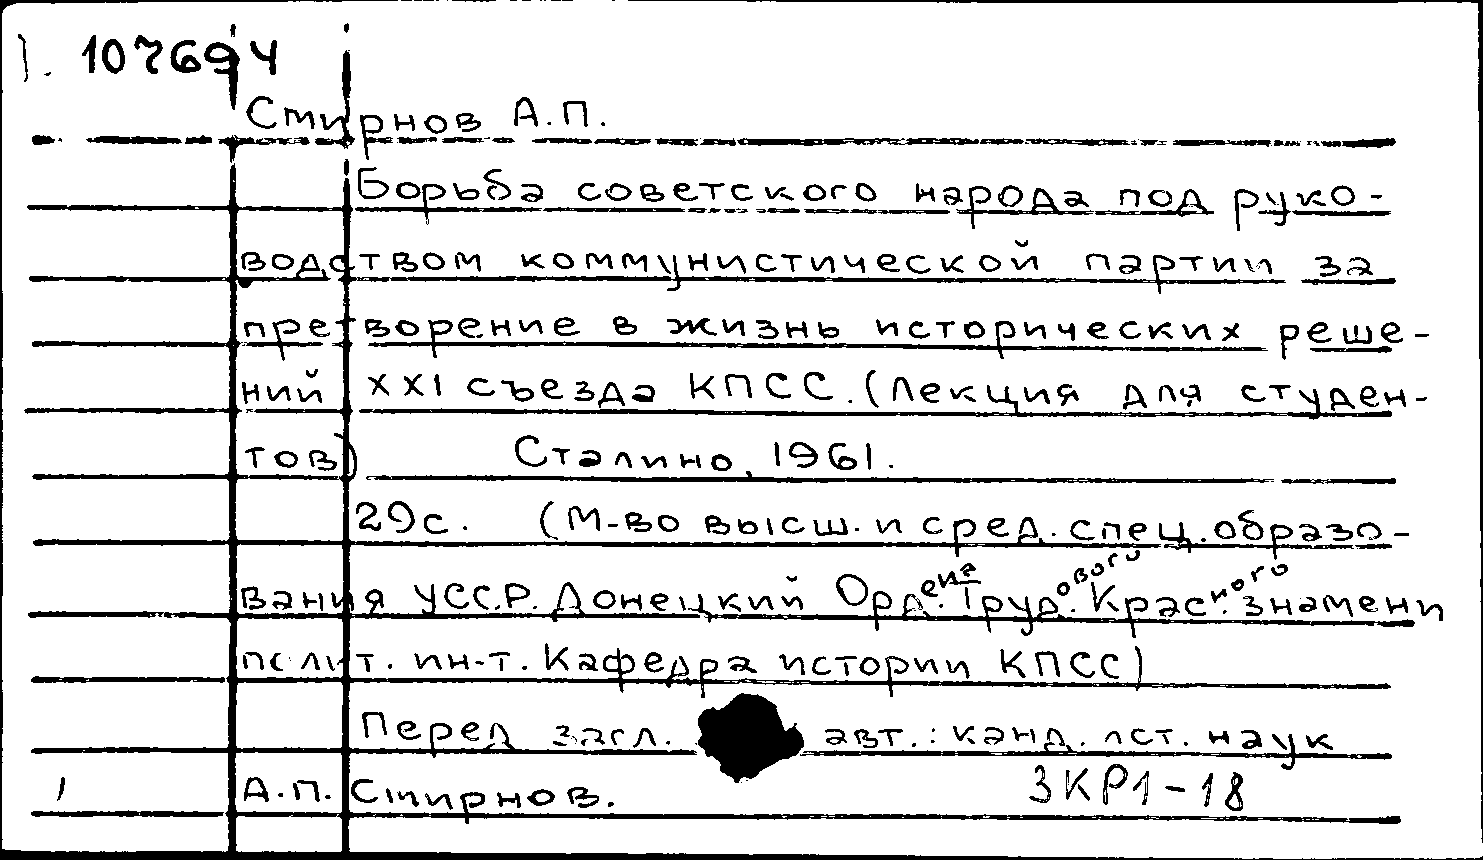 1. 107694
Смирнов А.П.
Борьба советского народа под руко-
водством коммунистической партии за
претворение в жизнь исторических реше-
ний XXI съезда КПСС. (Лекция для студен-
тов) Сталино, 1961.
29с. (М-во высш. и сред. спец. образо-
вания УССР. Донецкий Ордена Трудового Красного знамени
полит. ин-т. Кафедра истории КПСС)
Перед загл. авт.: канд. ист. наук
А.П. Смирнов. 3КР1-18